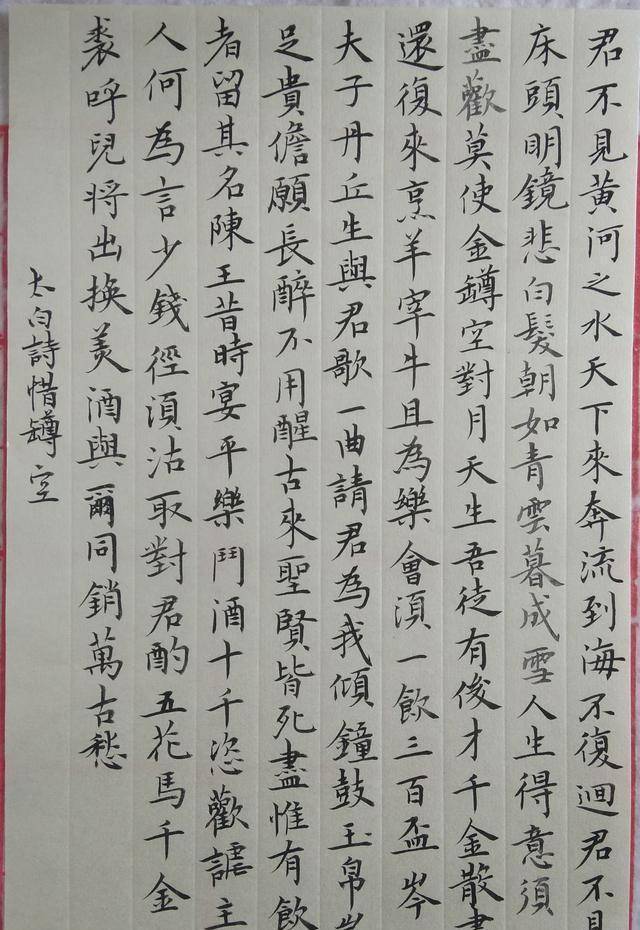 君不見黃河之水天下來奔流到海不復迴君不見
床頭明鏡悲白髮朝如青雲暮成雪人生得意須
盡歡莫使金罇空對月天生吾徒有俊才千金散盡
還復來烹羊宰牛且為樂會須一飲三百盃岑
夫子丹丘生與君歌一曲請君為我傾鐘鼓玉帛豈
足貴儋願長醉不用醒古來聖賢皆死盡惟有飲
者留其名陳王昔時宴平樂鬥酒十千恣歡謔主
人何為言少錢徑須沽取對君酌五花馬千金
裘呼兒將出換美酒與爾同銷萬古愁
太白詩惜罇空